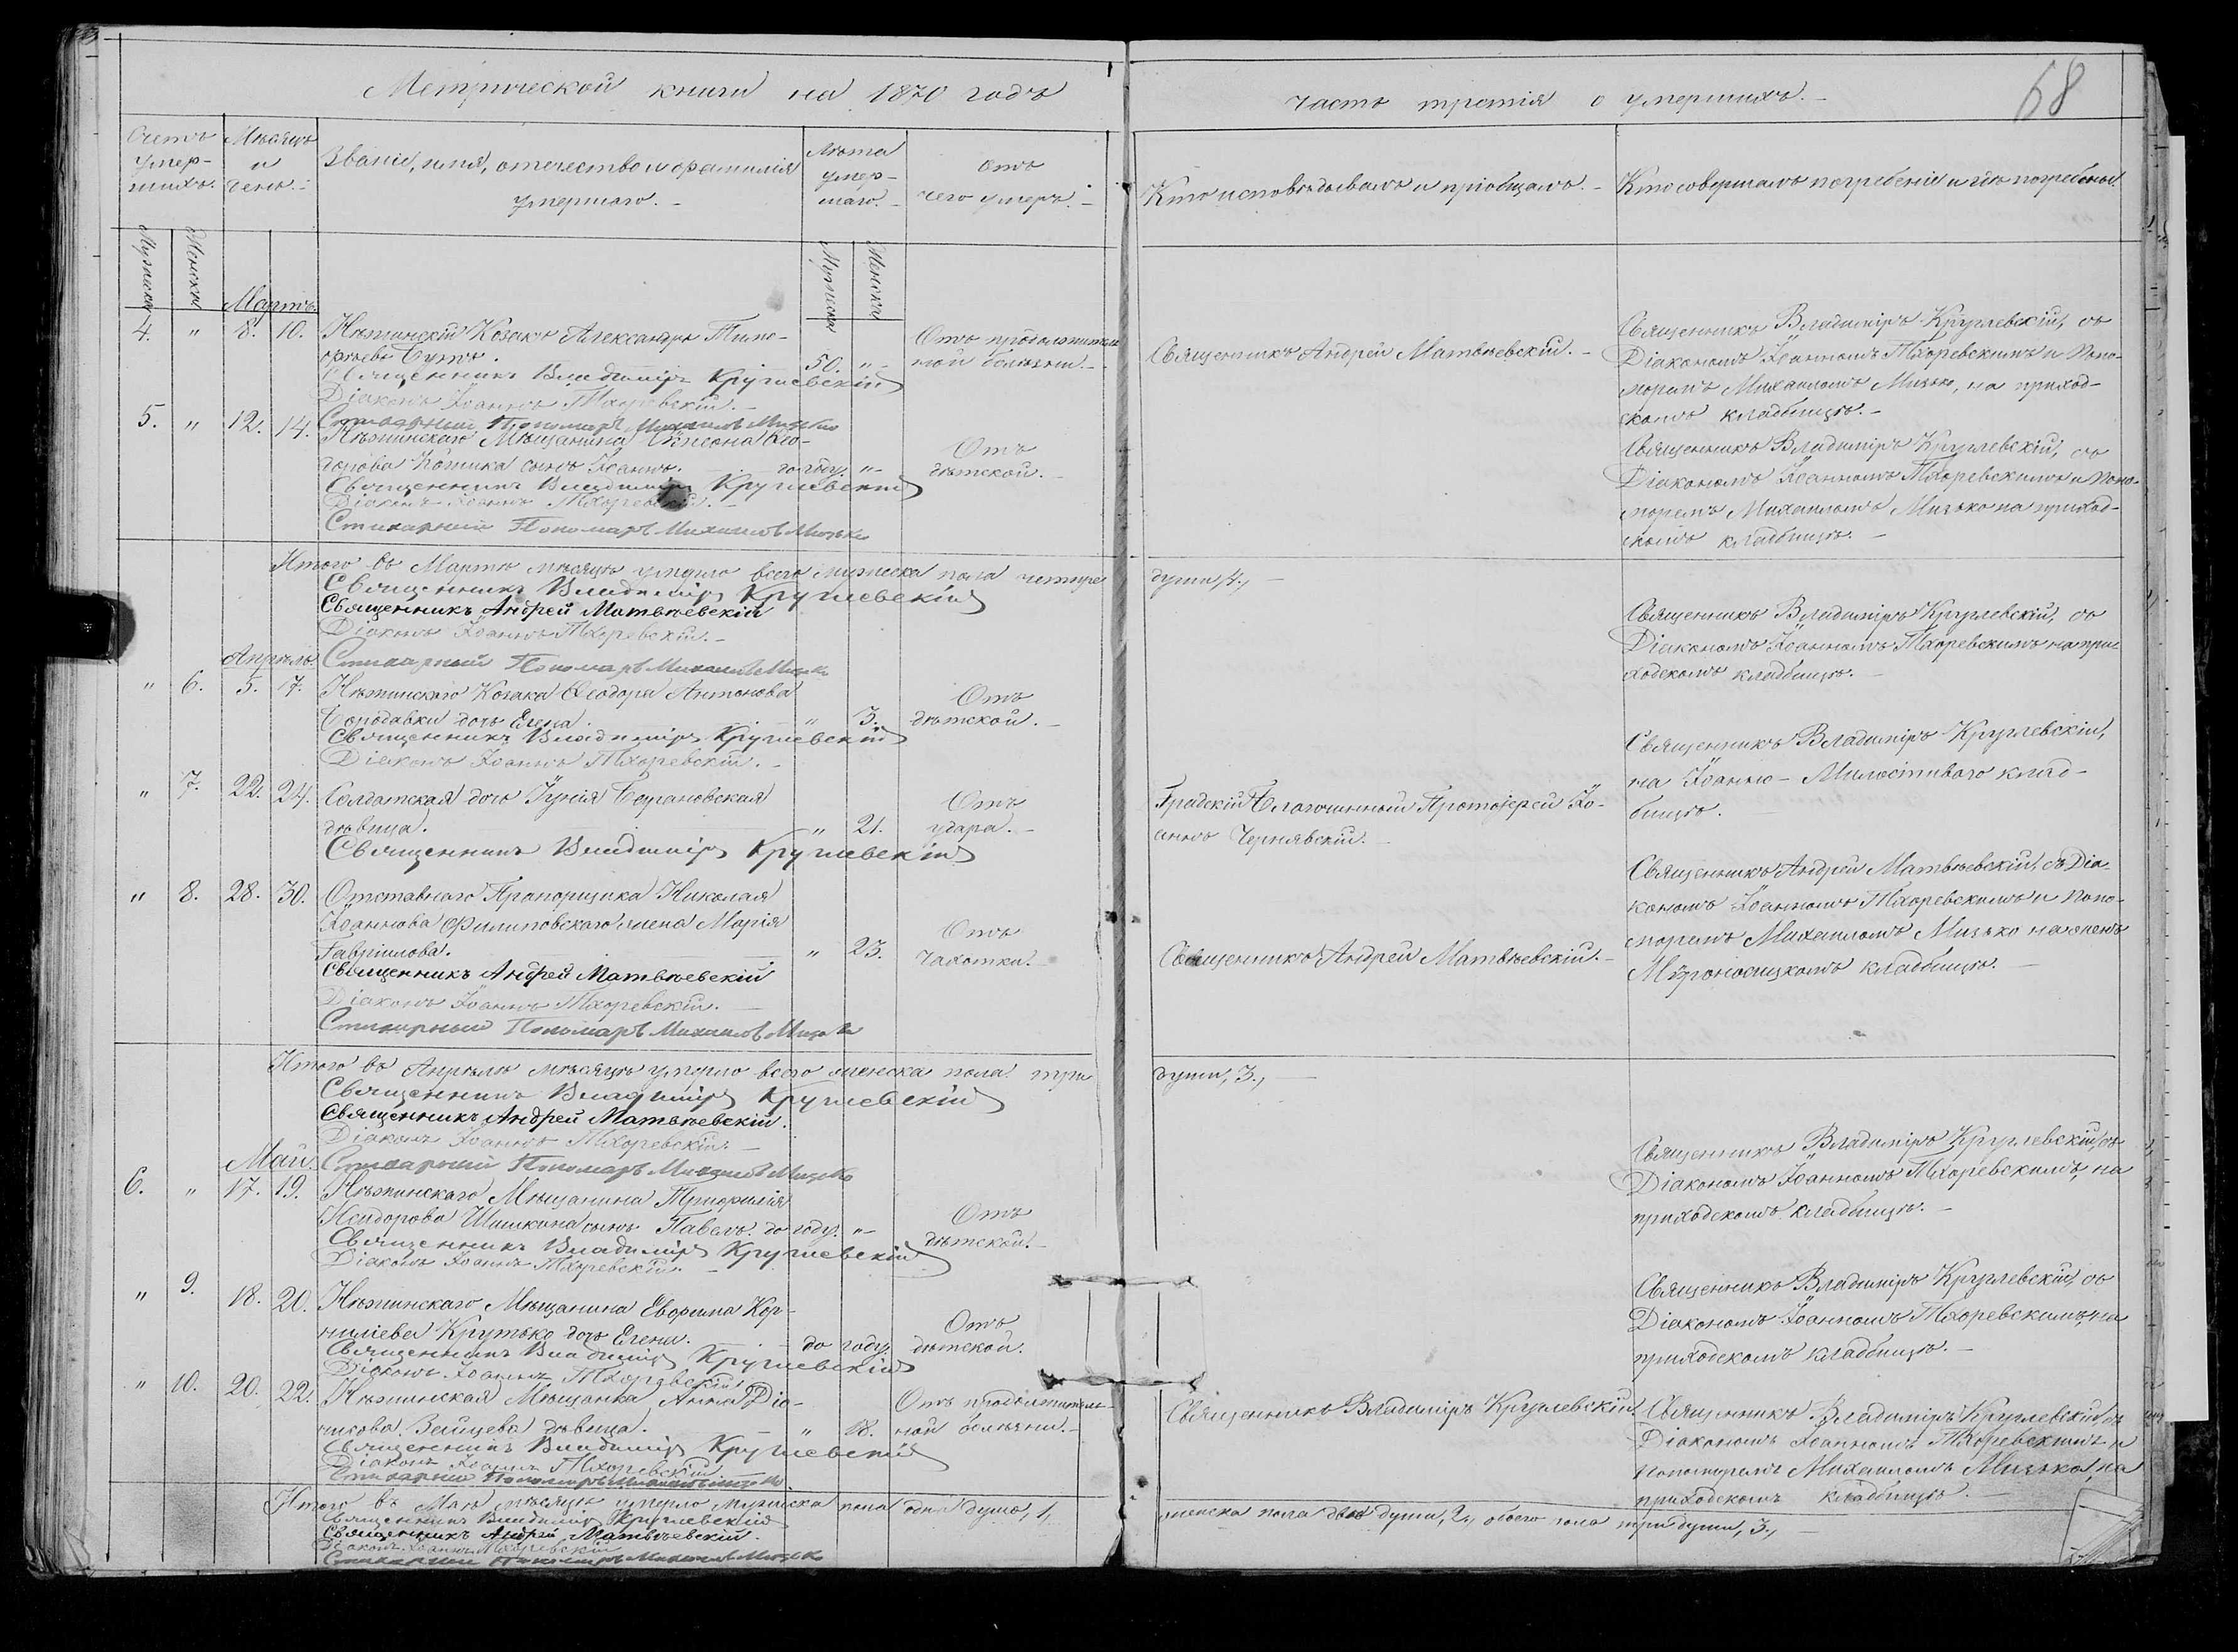 Метрической книги на 1870 годъ
часть третія о умершихъ.
68
Счетъ умер-шихъ.
Мѣсяцъ и день.
Званіе, имя, отечество и фамилія умершаго.
Лѣта умер-шаго.
Отъ чего умеръ.
Кто исповѣдывалъ и пріобщалъ.
Кто совершалъ погребеніе и гдѣ погребены.
Мужеска
Женска
Мужеска
Женска
Мартъ.
4. " 8. 10. Нѣжинскій Козакъ Александръ Тимо-
фѣевъ
50. "
Отъ продолжитель
ной болѣзни.
Священникъ Владиміръ Круглевскій
Діаконъ Іоаннъ Тхоревскій.
Стихарный Пономарь Михаилъ Мизько
Священникъ Андрей Матвѣевскій.
Священникъ Владиміръ Круглевскій, съ
Діакономъ Іоанномъ Тхоревскимъ и Поно-
маремъ Михаиломъ Мизько, на приход-
скомъ кладбищѣ.
5. " 12. 14. Нѣжинскаго Мѣщанина Симеона Ѳео-
дорова сынъ Іоаннъ. до году. "
Отъ
дѣтской.
Священникъ Владиміръ Круглевскій
Діаконъ Іоаннъ Тхоревскій.
Стихарный Пономарь Михаилъ Мизько
Священникъ Владиміръ Круглевскій, съ
Діакономъ Іоанномъ Тхоревскимъ и Поно-
маремъ Михаиломъ Мизько на приход-
скомъ кладбищѣ.
Итого въ Мартѣ мѣсяцѣ умерло всего мужеска пола четыре души, 4.,
Священникъ Владиміръ Круглевскій
Священникъ Андрей Матвѣевскій
Діаконъ Іоаннъ Тхоревскій.
Стихарный Пономарь Михаилъ Мизько
Апрѣль.
" 6. 5. 7. Нѣжинскаго Козака Ѳеодора Антонова
Бородавки дочь Елена. " 3.
Отъ
дѣтской.
Священникъ Владиміръ Круглевскій
Діаконъ Іоаннъ Тхоревскій.
Священникъ Владиміръ Круглевскій, съ
Діакономъ Іоанномъ Тхоревскимъ на при-
ходскомъ кладбищѣ.
" 7. 22. 24. Солдатская дочь Іунія Барановская
дѣвица. " 21.
Отъ
удара.
Священникъ Владиміръ Круглевскій
Градскій Благочинный Протоіерей Іо-
аннъ Чернявскій.
Священникъ Владиміръ Круглевскій,
на Іоанно-Милостиваго клад-
бищѣ.
" 8. 28. 30. Отставнаго Прапорщика Николая
Іоаннова Филиповскаго жена Марія
Гавріилова. " 23.
Отъ
чахотки.
Священникъ Андрей Матвѣевскій
Діаконъ Іоаннъ Тхоревскій.
Стихарный Пономарь Михаилъ Мизько
Священникъ Андрей Матвѣевскій.
Священникъ Андрей Матвѣевскій, съ Діа-
кономъ Іоанномъ Тхоревскимъ и Поно-
маремъ Михаиломъ Мизько на женъ
Мѵроносицкомъ кладбищѣ.
Итого въ Апрѣлѣ мѣсяцѣ умерло всего женска пола три души, 3.,
Священникъ Владиміръ Круглевскій
Священникъ Андрей Матвѣевскій.
Діаконъ Іоаннъ Тхоревскій.
Стихарный Пономарь Михаилъ Мизько
Май.
6. " 17. 19. Нѣжинскаго Мѣщанина Трифилія
Исидорова Шишкина сынъ Павелъ. до году. "
Отъ
дѣтской.
Священникъ Владиміръ Круглевскій
Діаконъ Іоаннъ Тхоревскій.
Священникъ Владиміръ Круглевскій, съ
Діакономъ Іоанномъ Тхоревскимъ, на
приходскомъ кладбищѣ.
" 9. 18. 20. Нѣжинскаго Мѣщанина Евфима Кор-
ниліева Крутько дочь Елена. до году.
Отъ
дѣтской.
Священникъ Владиміръ Круглевскій
Діаконъ Іоаннъ Тхоревскій
Священникъ Владиміръ Круглевскій, съ
Діакономъ Іоанномъ Тхоревскимъ, на
приходскомъ кладбищѣ.
" 10. 20. 22. Нѣжинская Мѣщанка Анна Діо-
нисова Зайцева дѣвица. " 18.
Отъ продолжитель-
ной болѣзни.
Священникъ Владиміръ Круглевскій
Діаконъ Іоаннъ Тхоревскій
Стихарный Пономарь Михаилъ Мизько
Священникъ Владиміръ Круглевскій.
Священникъ Владиміръ Круглевскій съ
Діакономъ Іоанномъ Тхоревскимъ и
Пономаремъ Михаиломъ Мизько, на
приходскомъ кладбищѣ.
Итого въ Маѣ мѣсяцѣ умерло мужеска пола одна душа, 1, женска пола двѣ души, 2., обоего пола три души, 3.,
Священникъ Владиміръ Круглевскій
Священникъ Андрей Матвѣевскій.
Діаконъ Іоаннъ Тхоревскій
Стихарный Пономарь Михаилъ Мизько